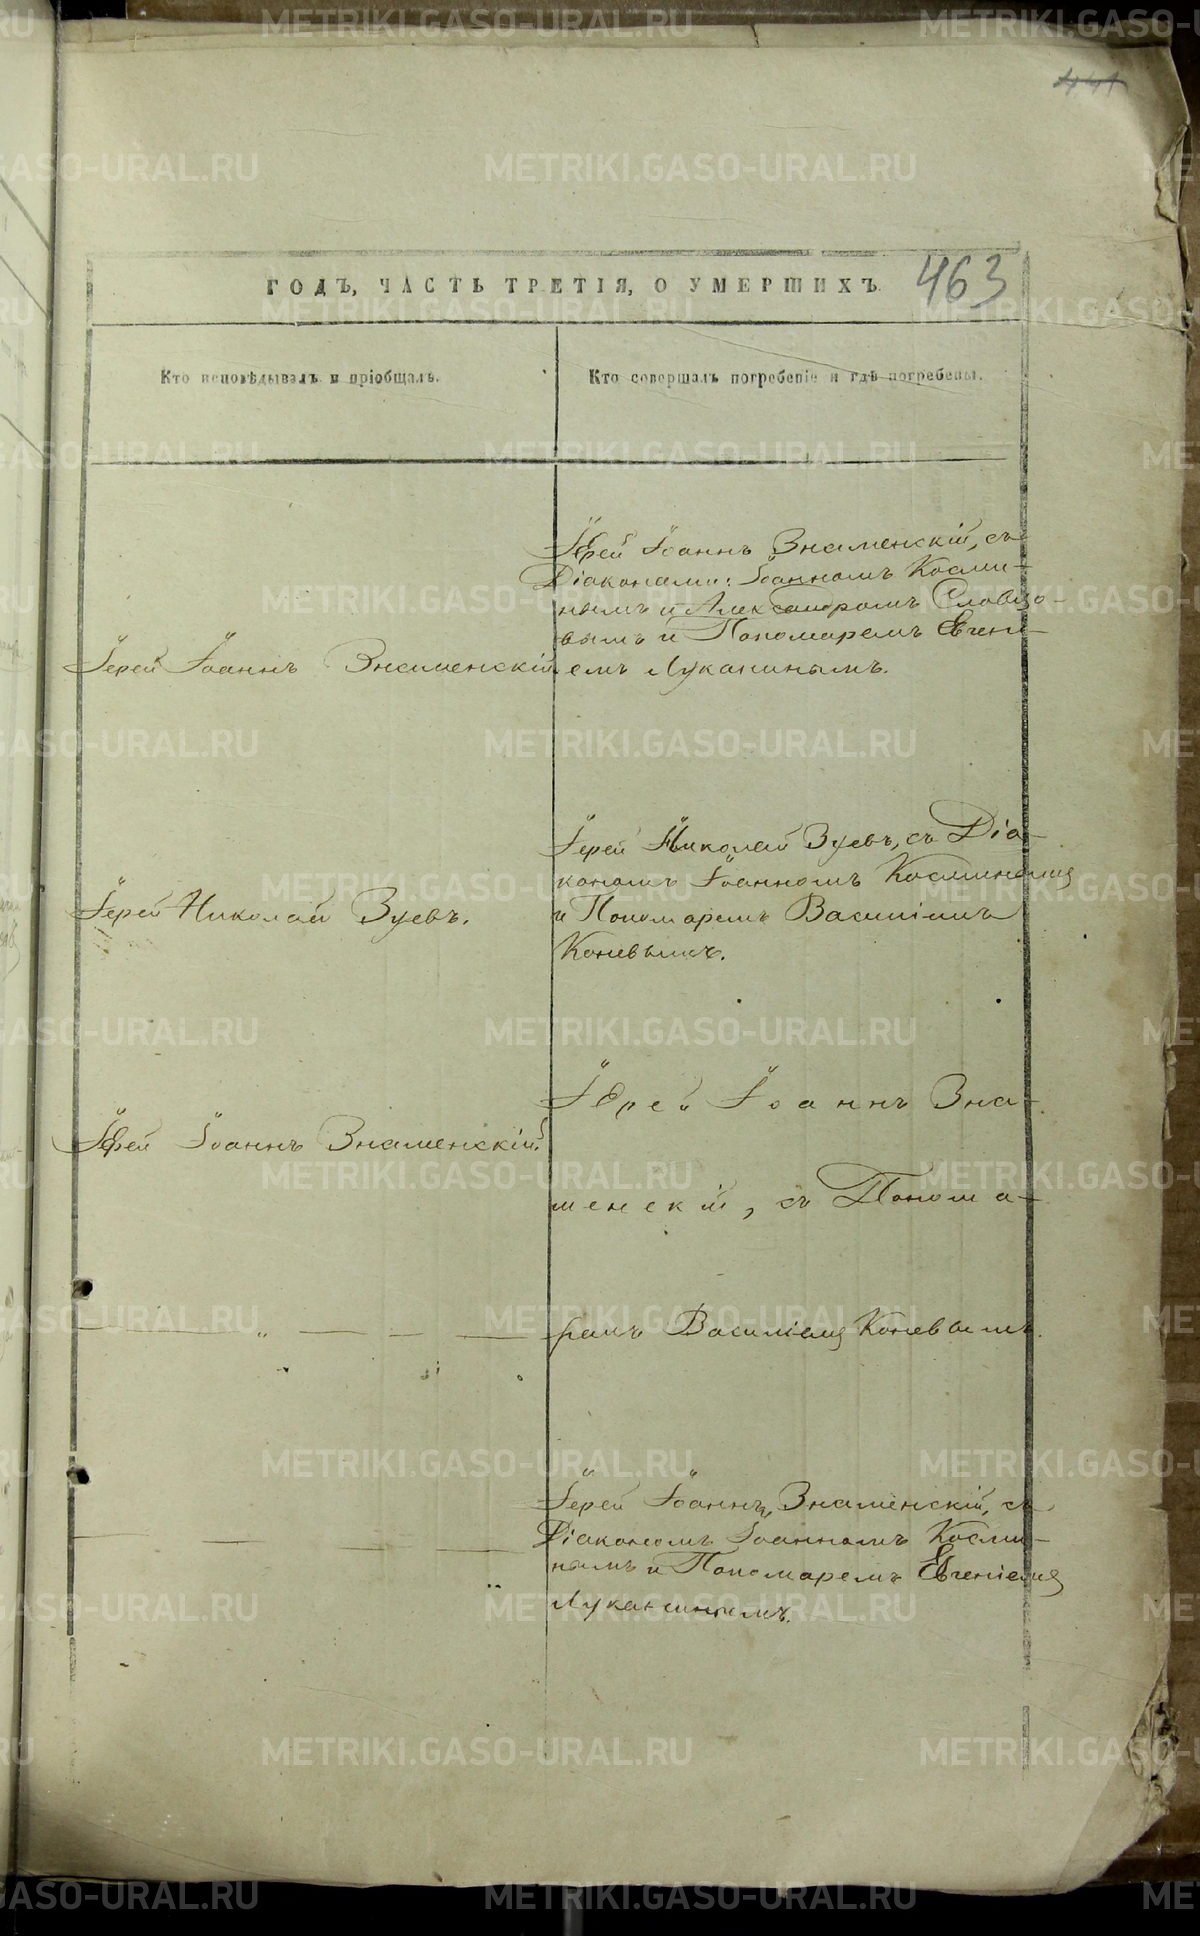 441
ГОДЪ, ЧАСТЬ ТРЕТІЯ, О УМЕРШИХЪ.
463
Кто исповѣдывалъ и пріобщалъ.
Кто совершалъ погребеніе и гдѣ погребены.
Іерей Іоаннъ Знаменскій
Іерей Іоаннъ Знаменскій, съ
Діаконами: Іоанномъ Косми-
нымъ и Александромъ Словцо-
вымъ и Пономаремъ Евгені-
емъ Луканинымъ.
Іерей Николай Зуевъ.
Іерей Николай Зуевъ, съ Діа-
кономъ Іоанномъ Косминымъ
и Пономаремъ Василіемъ
Коневымъ.
Іерей Іоаннъ Знаменскій.
Іерей Іоаннъ Зна-
менскій, съ Понома-
ремъ Василіемъ Коневымъ.
— „ — — —
Іерей Іоаннъ Знаменскій, съ
Діакономъ Іоанномъ Косми-
нымъ и Пономаремъ Евгеніемъ
Луканинымъ.
METRIKI.GASO-URAL.RU